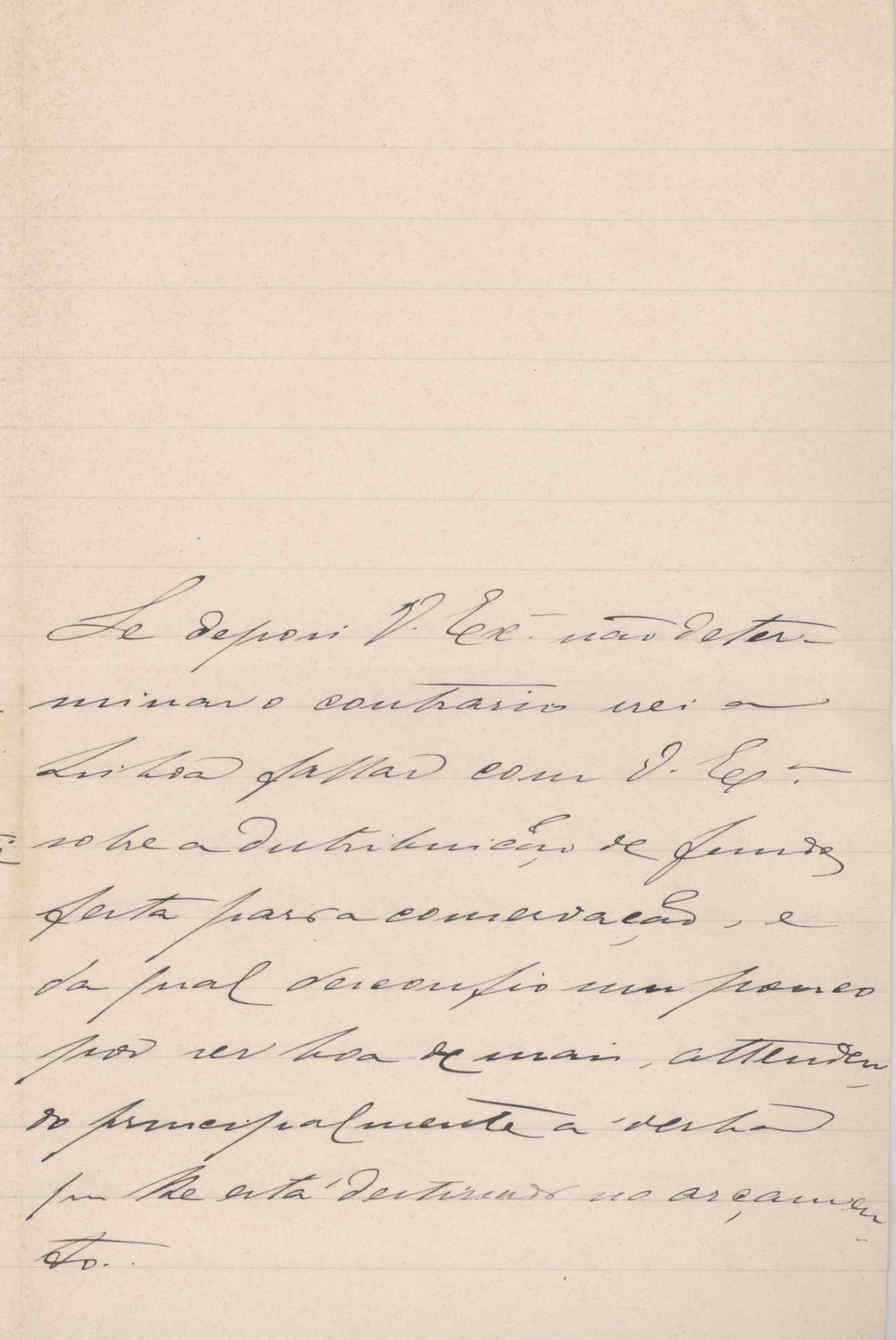 Se depois V. Exª. não deter-
minar o contrario irei a
Lisboa fallar com V. Exª.
sobre a distribuição de fundos
feita para a conservação, e
da qual desconfio um pouco
por ser boa de mais, attenden-
do principalmente á verba
que lhe está destinada no orçamen-
to.